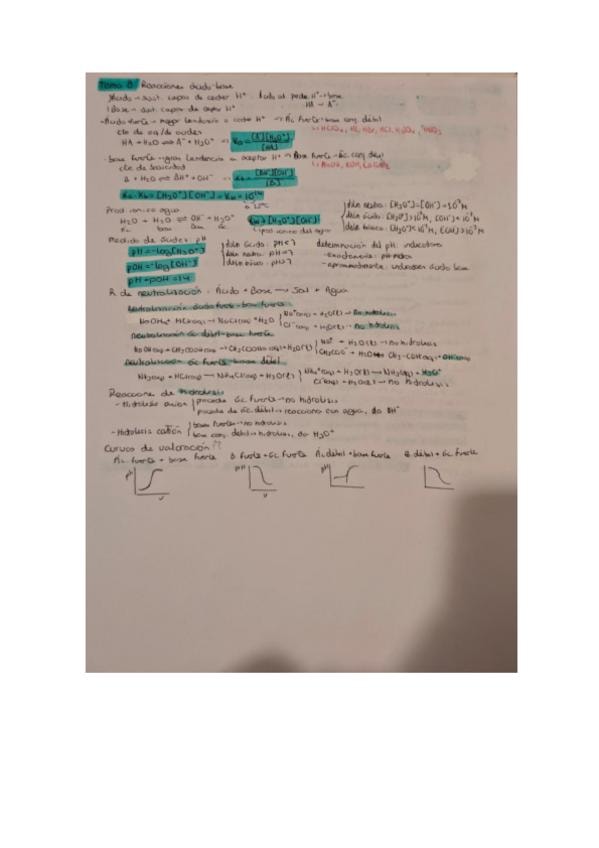 Tema 8: Reacciones ácido-base
Ácido → sust. capaz de ceder H⁺. Ácido al perder H⁺ → base
Base → sust. capaz de captar H⁺ HA → A⁻
- Ácido fuerte → mayor tendencia a ceder H⁺ → Ác. fuerte - base conj. débil
↳ HClO₄, HI, HBr, HCl, H₂SO₄, HNO₃
HA + H₂O ⇌ A⁻ + H₃O⁺ → Ka = [A⁻][H₃O⁺] / [HA]
- base fuerte → gran tendencia a aceptar H⁺ → Base fuerte - ác. conj. débil
cte de basicidad
B + H₂O ⇌ BH⁺ + OH⁻ → Kb = [BH⁺][OH⁻] / [B]
Ka · Kb = [H₃O⁺][OH⁻] = Kw = 10⁻¹⁴
Prod. iónico agua
H₂O + H₂O ⇌ OH⁻ + H₃O⁺ Kw = [H₃O⁺][OH⁻]
↳ prod. iónico del agua
disln neutra: [H₃O⁺] = [OH⁻] = 10⁻⁷ M
disln ácida: [H₃O⁺] > 10⁻⁷ M, [OH⁻] < 10⁻⁷ M
disln básica: [H₃O⁺] < 10⁻⁷ M, [OH⁻] > 10⁻⁷ M
Medida de acidez: pH
pH = -log[H₃O⁺]
pOH = -log[OH⁻]
pH + pOH = 14
disln ácida: pH < 7
disln neutra: pH = 7
disln básica: pH > 7
determinación del pH: indicadores
- exactamente: pHmetro
- aproximadamente: indicador ácido base
R. de neutralización: Ácido + Base → Sal + Agua
neutralización ácido fuerte - base fuerte
NaOH + HCl(aq) → NaCl(aq) + H₂O { Na⁺(aq) + H₂O(l) → no hidrólisis
Cl⁻(aq) + H₂O(l) → no hidrólisis
neutralización ác. débil - base fuerte
NaOH(aq) + CH₃COOH(aq) → CH₃COONa(aq) + H₂O(l) { Na⁺ + H₂O(l) → no hidrólisis
CH₃COO⁻ + H₂O ⇌ CH₃-COOH(aq) + OH⁻(aq)
neutralización ác. fuerte - base débil
NH₃(aq) + HCl(aq) → NH₄Cl(aq) + H₂O(l) { NH₄⁺(aq) + H₂O(l) → NH₃(aq) + H₃O⁺
Cl⁻(aq) + H₂O(l) → no hidrólisis
Reacciones de hidrólisis
- Hidrólisis anión { procede ác. fuerte → no hidrólisis
procede de ác. débil → reacciona con agua, da OH⁻
- Hidrólisis catión { base fuerte → no hidrólisis
base conj. débil → hidrólisis, da H₃O⁺
Curvas de valoración
Ác. fuerte + base fuerte B fuerte + ác fuerte Ác. débil + base fuerte B. débil + ác fuerte
pH pH pH
V V